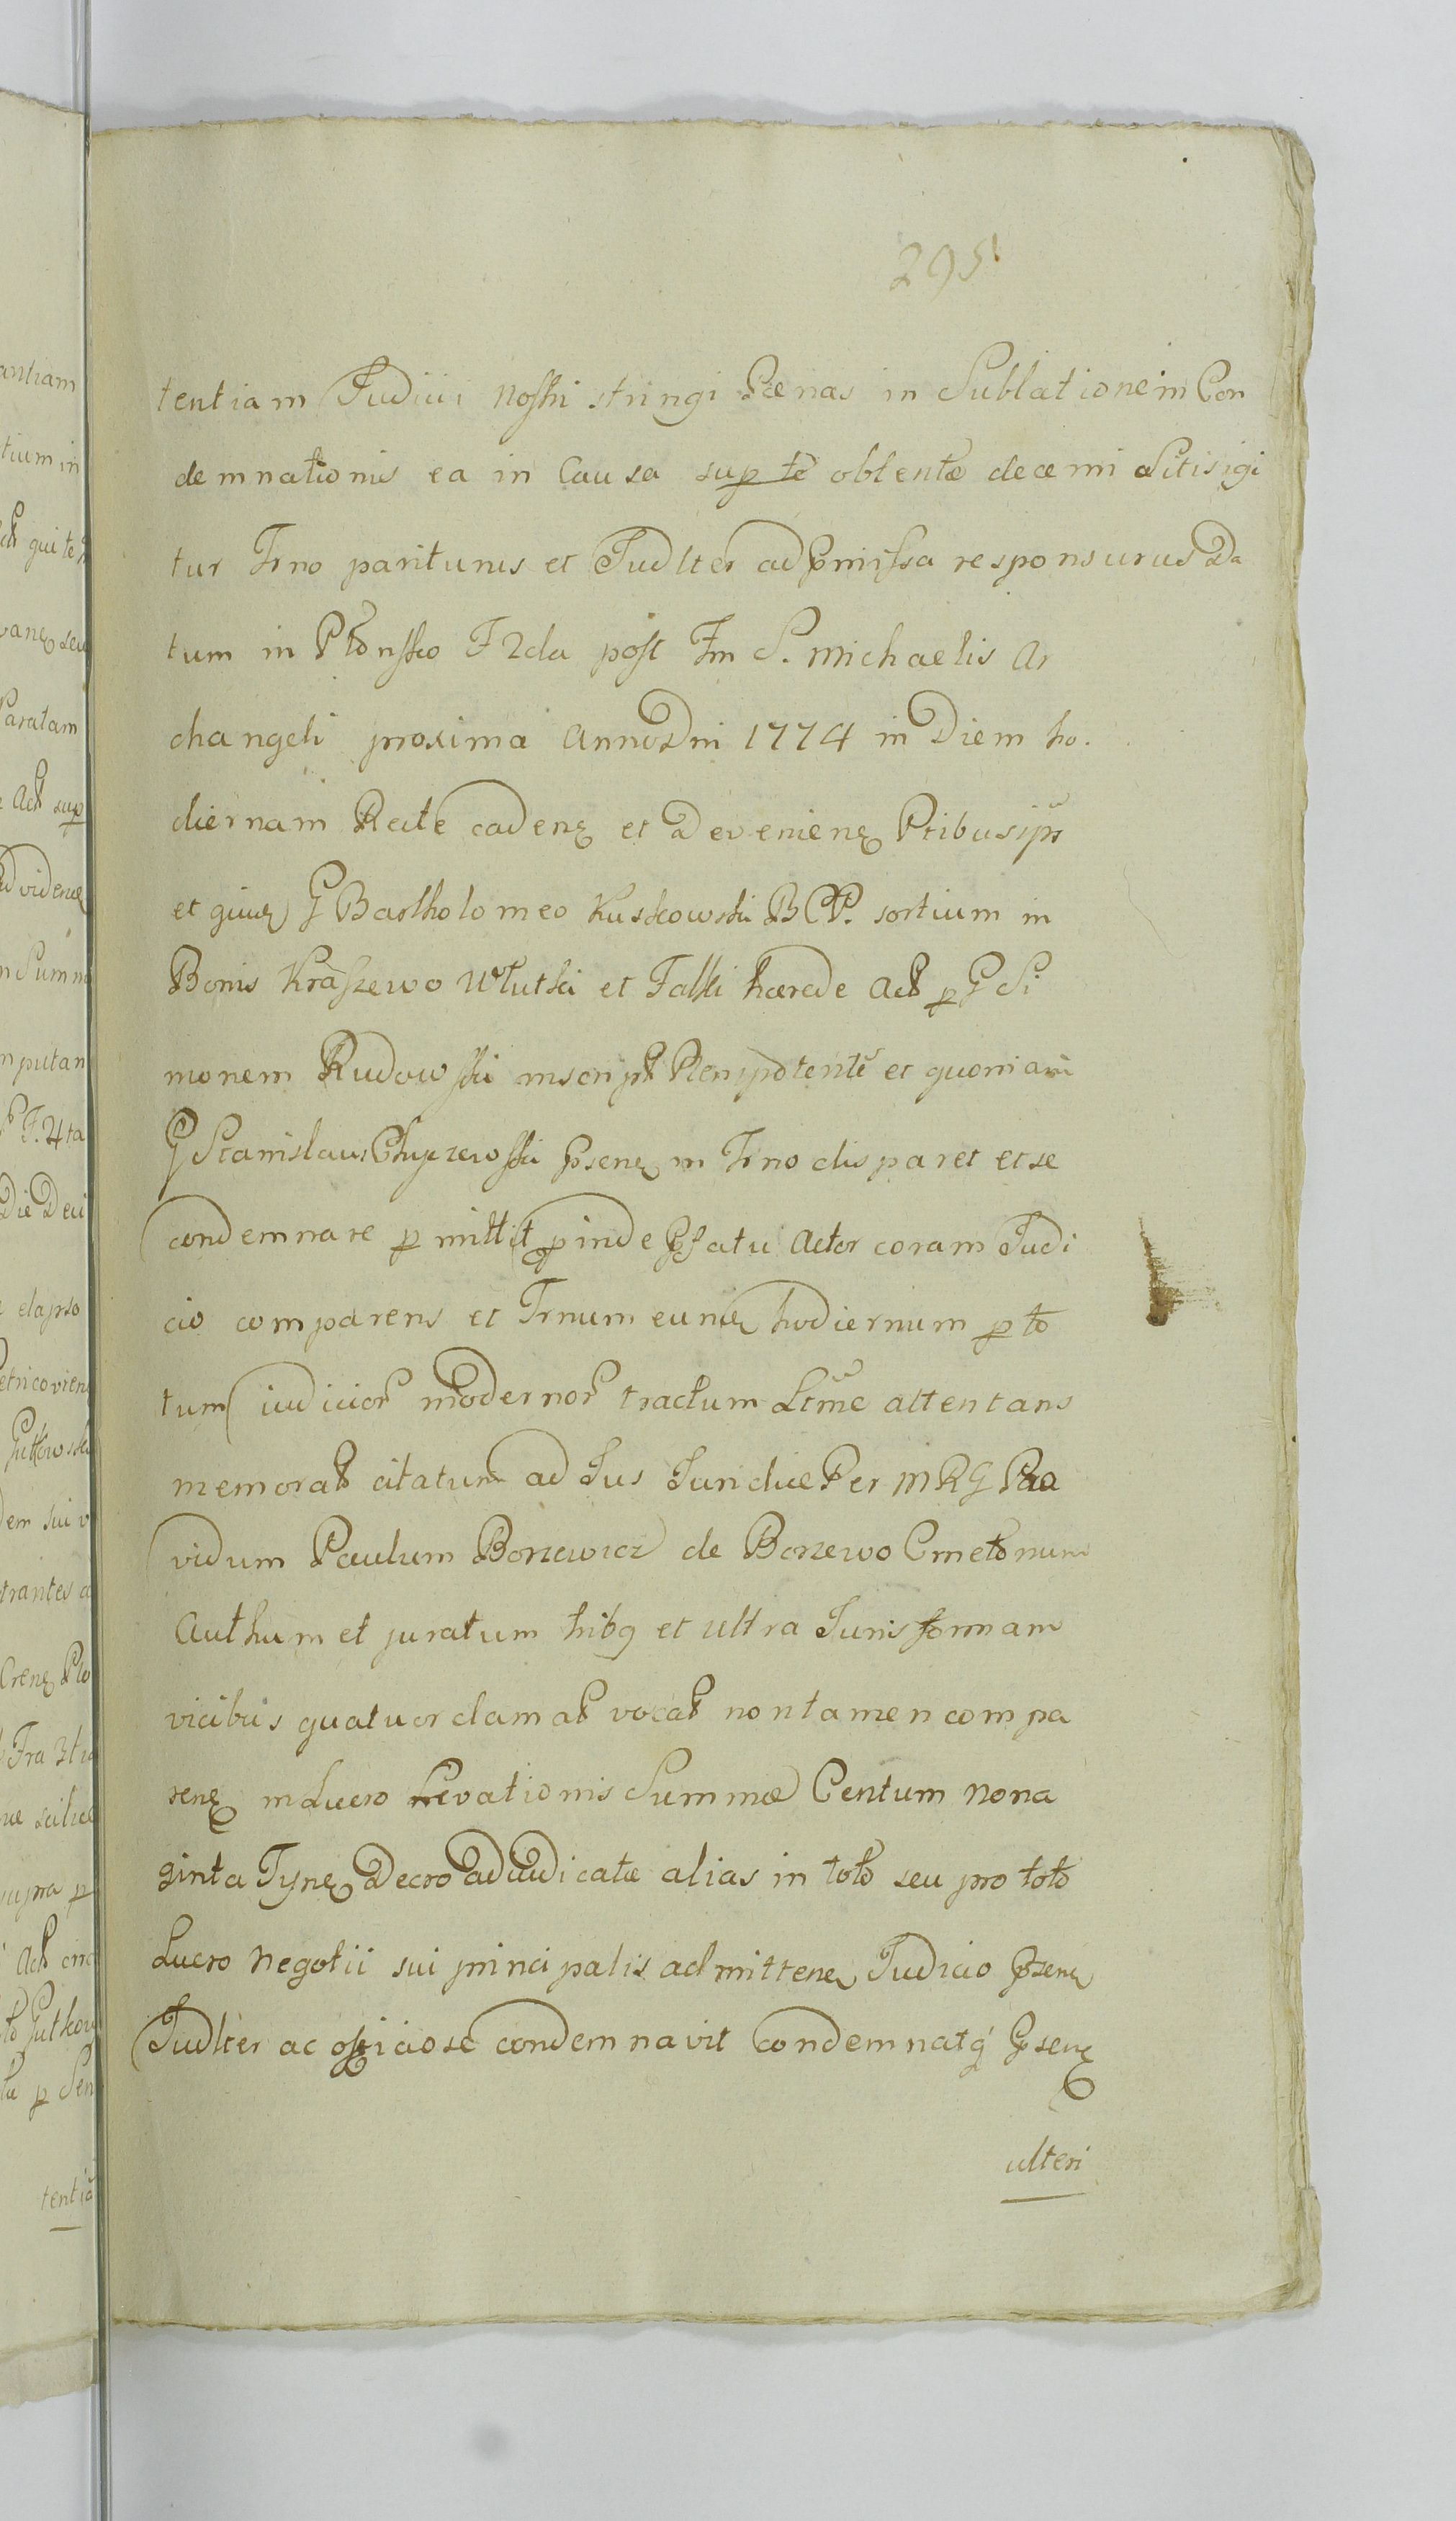 295
tentiam Judicii nostri stringi Pœnas in Sublationem Con
demnationis ea in Causa sup te obtentæ decerni Citis igi
tur Trno pariturus et Judlter ad pmissa responsurus Da
tum in Płonsko F 2da post Fm S. Michaelis Ar
changeli proxima Anno Dni 1774 in Diem ho.
diernam Recte caden et Devenien Ptibus ips
et quiuq G Bartholomeo Kuskowski B C P. sortium in
Bonis Kraszewo Włutski et Falki hærede Act p G Si
monem Rudowski inscript Plenipotente et quoniam
G Stanislaus psen in Trno disparet et se
condemnare p mittit proinde pfatu Actor coram Judi
cio comparens et Trnum eunq hodiernum p to
tum iudicior modernor tractum Ltme attentans
memorat citatum ad Jus Juridice Per M R G Pro
vidum Paulum Borzewicz de Borzewo Cmetonum
Authum et juratum tribq et ultra Juris formam
vicibus quatuor clamat vocat non tamen compa
ren in Lucro Levationis Summæ Centum Nona
ginta Tyn Decro adiudicatæ alias in toto seu pro toto
Lucro Negotii sui principalis admitten Judicio psen
Judlter ac officiose condemnavit condemnatq psen
ulteri
antiam
tium in
qui te
Paratam
Act sup
videre
Summ
putan
F. 4ta
Die Deci
elapso
etricovien
Gutkowski
dem sui
trantes
Cren Plo
Fra 3tia
scilice
supra p
Act
Gutkow
p Sen
tentiã